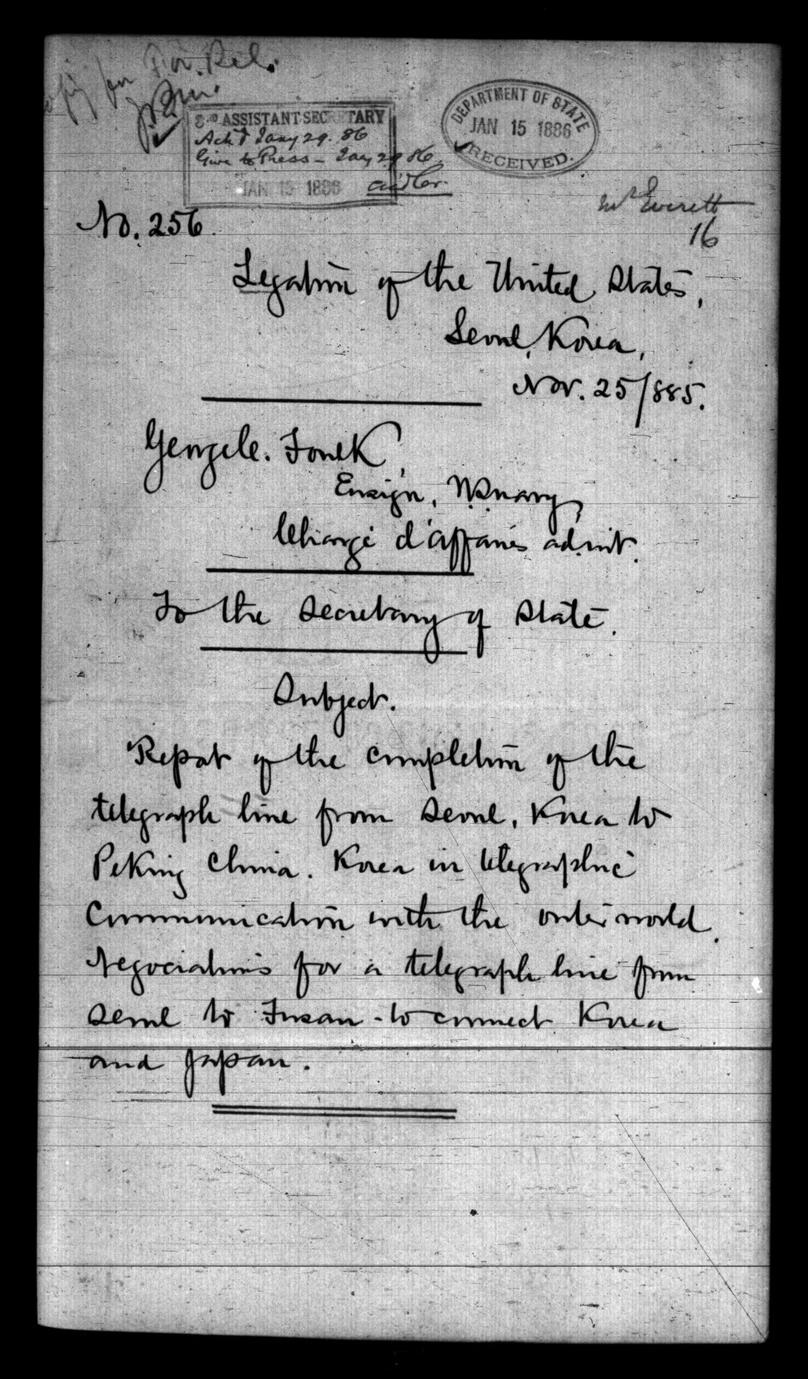 Copy for For. Rel.
3RD ASSISTANT SECRETARY
Ack'd Jany 29. 86
Give to Press - Jany 29 86.
JAN 15 1886
DEPARTMENT OF STATE
JAN 15 1886
RECEIVED.
Mr Everett
16
No. 256
Legation of the United States,
Seoul, Korea,
Nov. 25/885.
George C. Foulk,
Ensign, U.S. Navy,
Chargé d'affaires ad. int.
To the Secretary of State.
Subject.
Report of the completion of the
telegraph line from Seoul, Korea to
Peking China. Korea in telegraphic
Communication with the outer world.
Negociations for a telegraph line from
Seoul to Fusan - to connect Korea
and Japan.